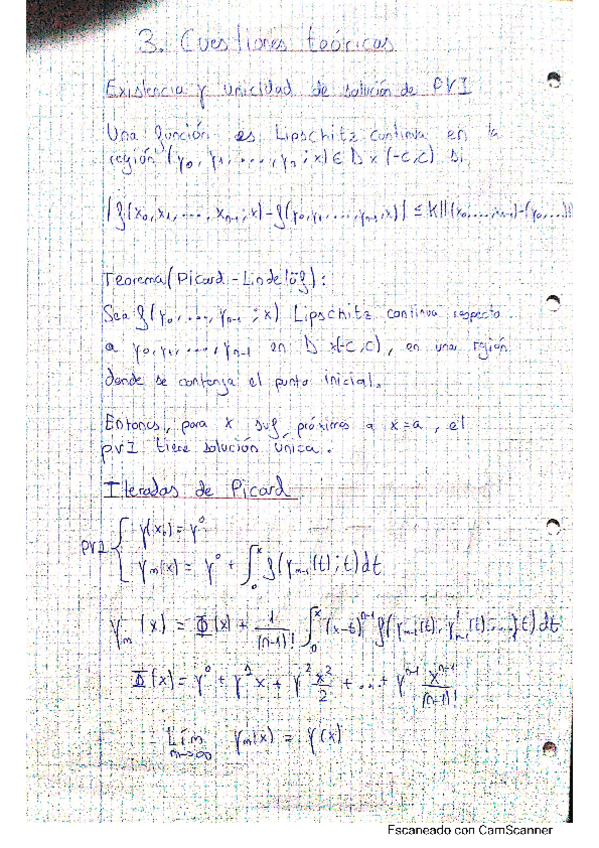 3. Cuestiones teóricas
Existencia y unicidad de solución de PVI
Una función es Lipschitz continua en la
región (y₀, y₁, ..., yₙ ; x) ∈ D x (-c, c) si
|f(x₀, x₁, ..., xₙ₋₁, x) - f(y₀, y₁, ..., yₙ₋₁, x)| ≤ K||(x₀, ..., xₙ₋₁) - (y₀, ...)||
Teorema (Picard-Lindelöf):
Sea f(y₀, ..., yₙ₋₁ ; x) Lipschitz continua respecto
a y₀, y₁, ..., yₙ₋₁ en D x(-c, c), en una región
donde se contenga el punto inicial.
Entonces, para x suf. próximos a x=a, el
PVI tiene solución única.
Iteradas de Picard
PVI { y(x₀) = y⁰
yₘ(x) = y⁰ + ∫₀ˣ f(yₘ₋₁(t); t) dt
yₘ(x) = Φ(x) + 1/(n-1)! ∫₀ˣ (x-t)ⁿ⁻¹ f(yₘ₋₁(t), y'ₘ₋₁(t), ...; t) dt
Φ(x) = y⁰ + y¹x + y² x²/2 + ... + yⁿ⁻¹ xⁿ⁻¹/(n-1)!
Lim m→∞ yₘ(x) = y(x)
Escaneado con CamScanner